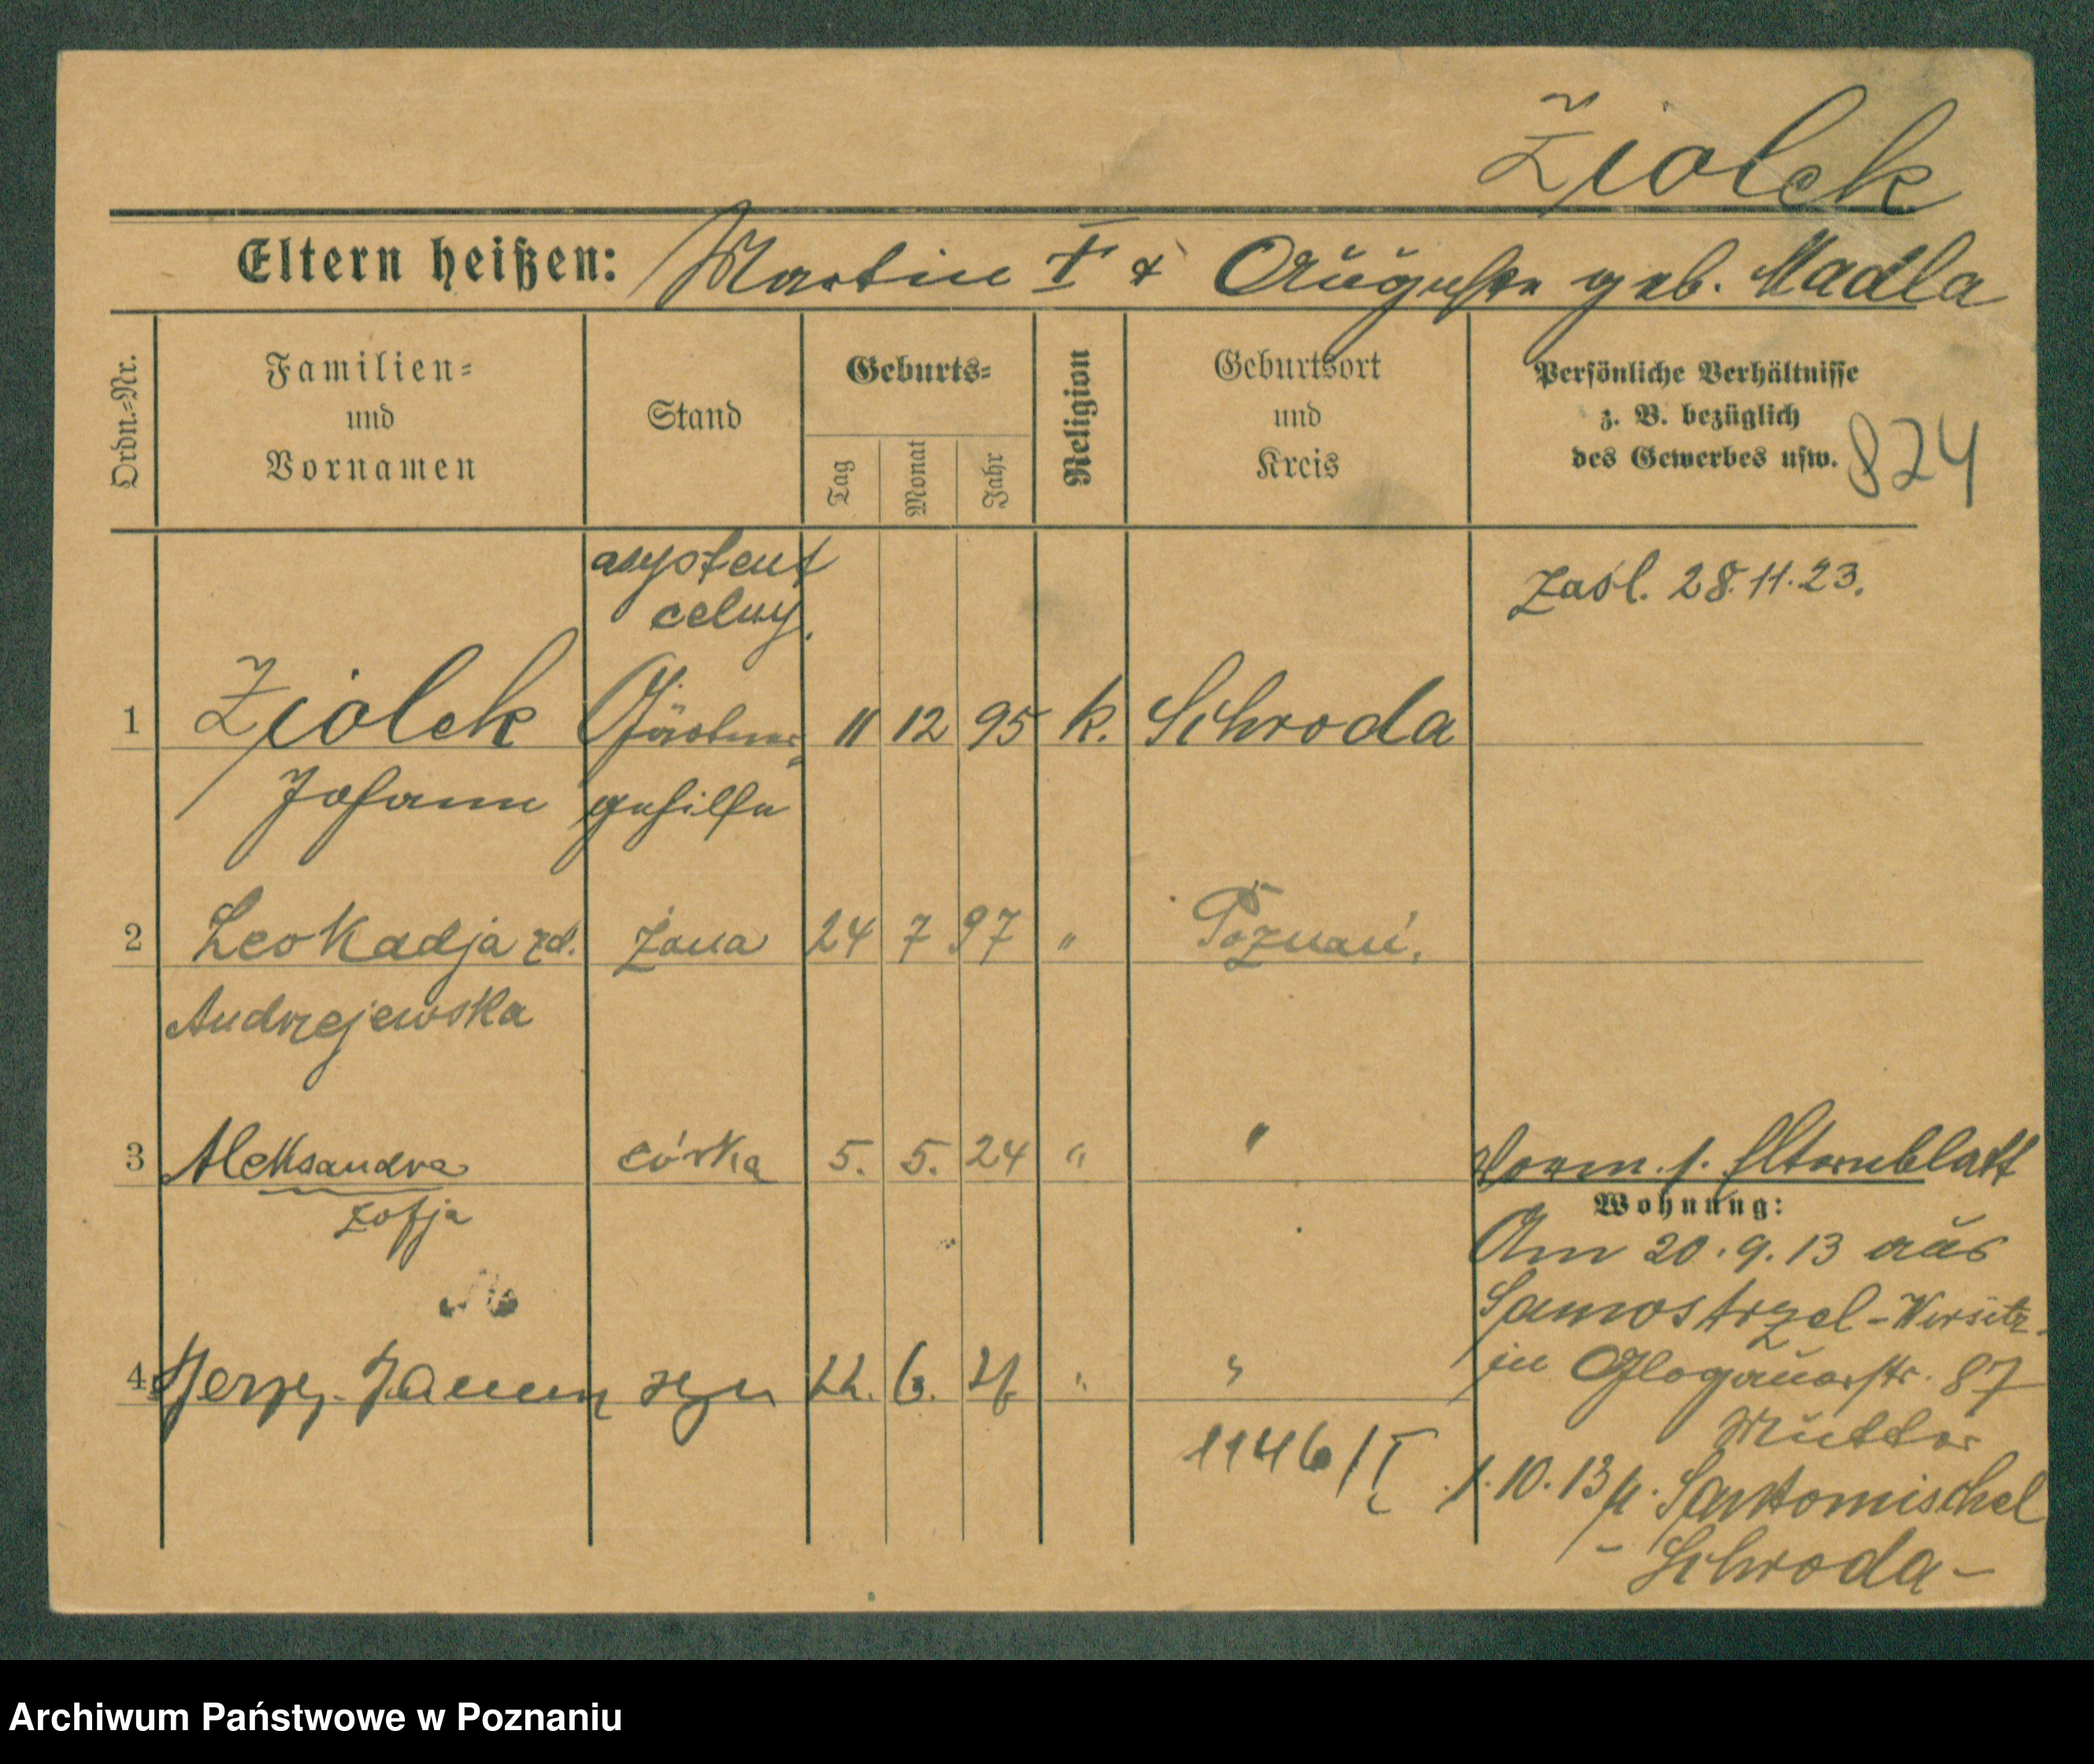 Ziolek
Eltern heißen: Martin † & Auguste geb. Madla
Ordn.=Nr.
Familien=
und
Vornamen
Stand
Geburts=
Tag
Monat
Jahr
Religion
Geburtsort
und
Kreis
Persönliche Verhältnisse
z. B. bezüglich
des Gewerbes usw.
824
asystent
celny.
zaśl. 28.11.23.
1 Ziolek Gärtner= 11 12 95 k. Schroda
Johann gehilfe
2 Leokadja zd. żona 24 7 97 " Poznań.
Andrzejewska
3 Aleksandra córka 5. 5. 24 " "
Zofja
4 Jerzy, syn 22. 6. 26 " "
1146/I
Vorm. s. Elternblatt
Wohnung:
Am 20.9.13 aus
Samostrzel-Wirsitz
in Glogauerstr. 87
Mutter
1.10.13 n. Santomischel
- Schroda -
Archiwum Państwowe w Poznaniu